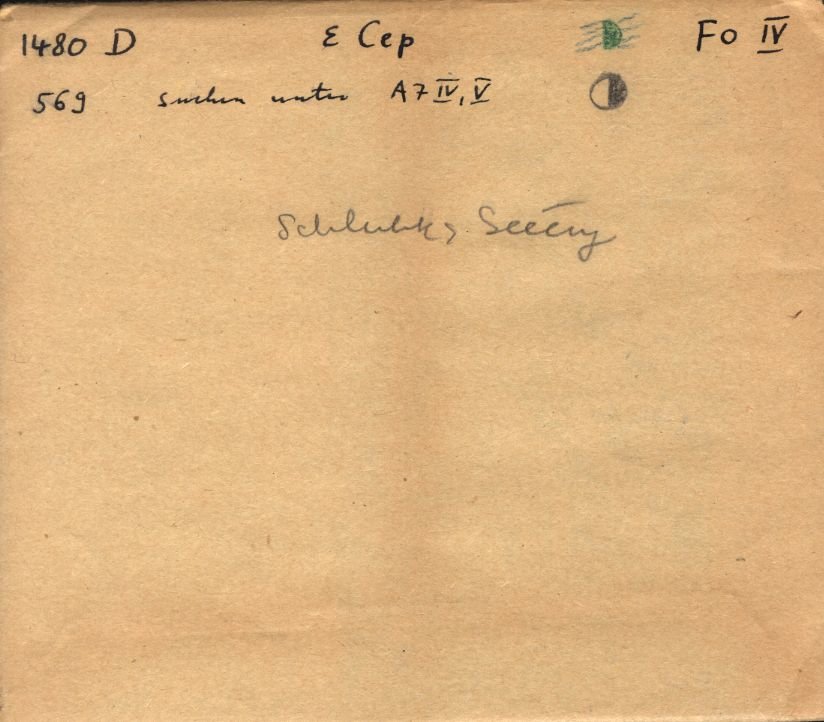 1480 D ε Cep Fo IV
569 suchen unter A7 IV, V